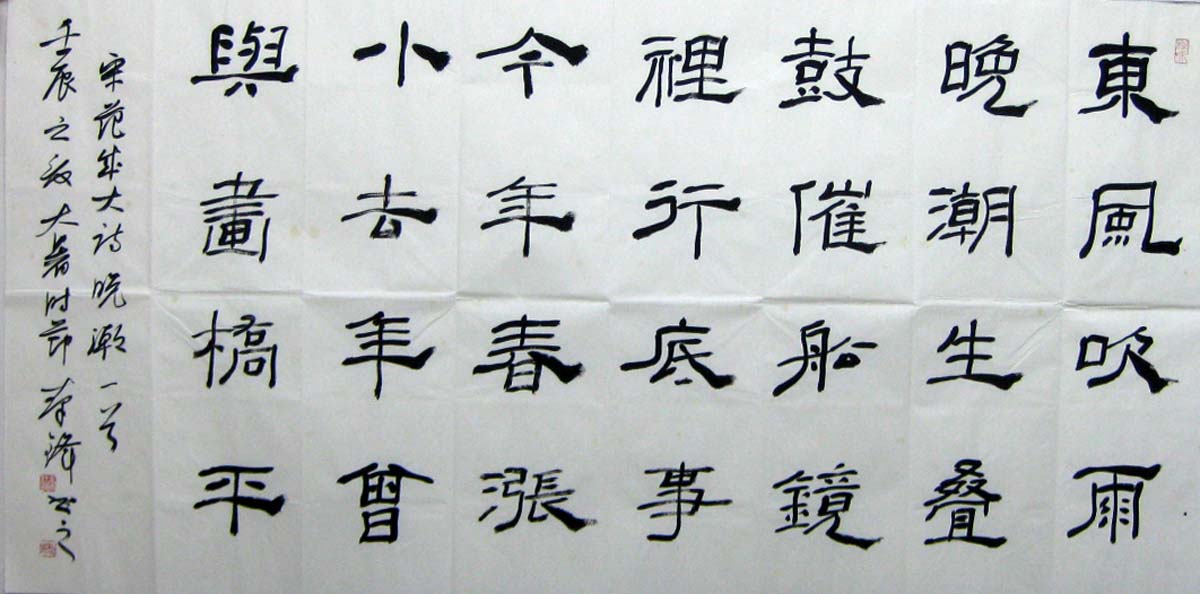 東風吹雨
晚潮生叠
鼓催船鏡
裡行底事
今年春漲
小去年曾
與畫橋平
宋范成大詩晚潮一首
壬辰之秋大暑时节
书之